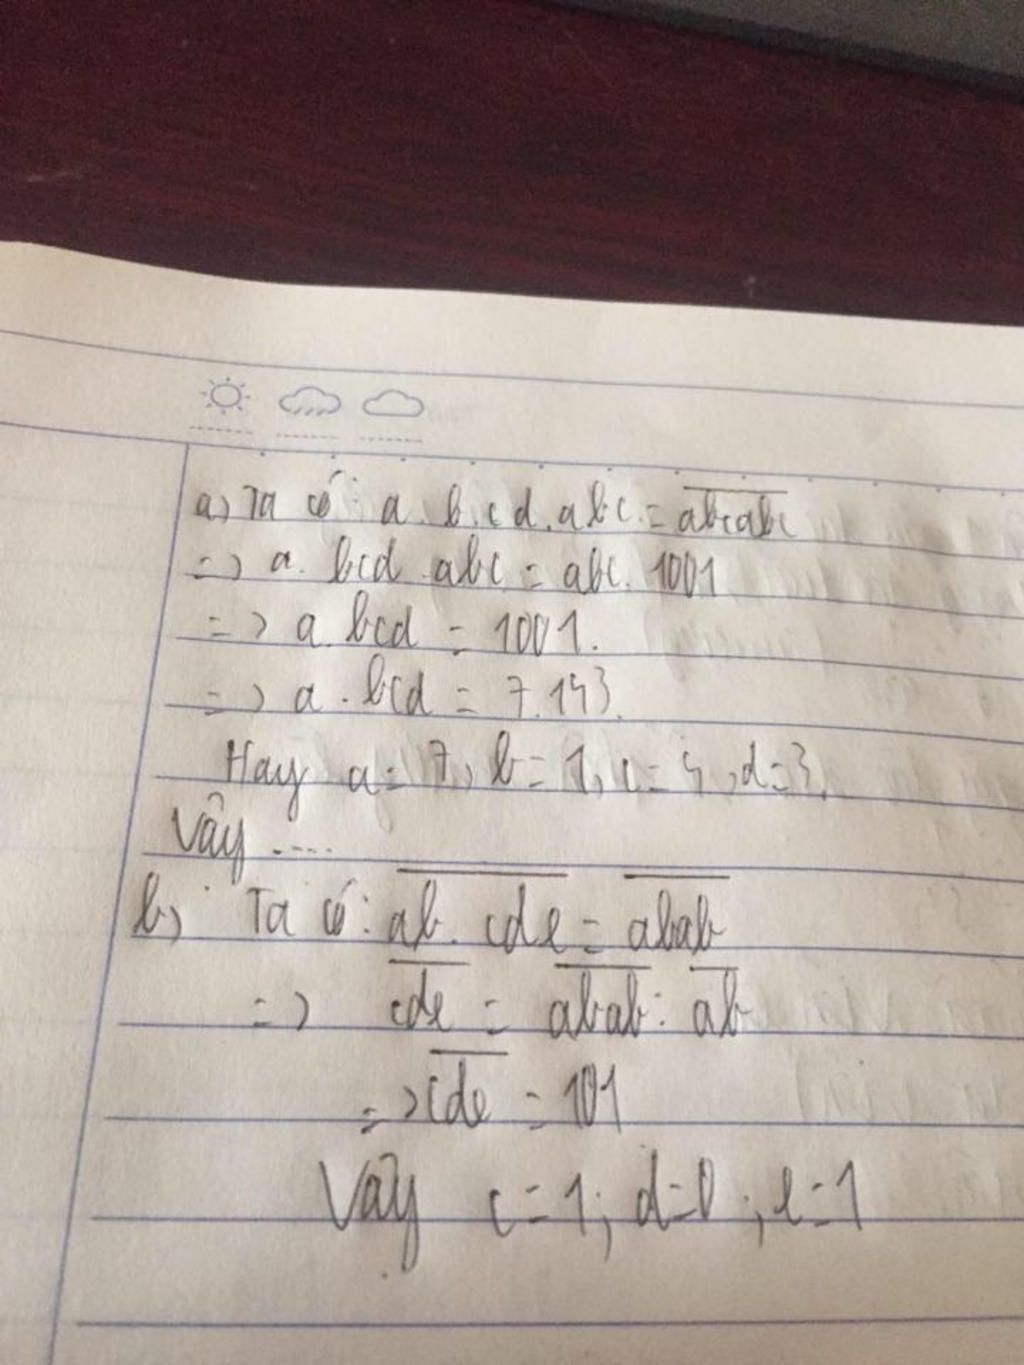 a) Ta có: a.bcd.abc = abcabc
=> a.bcd.abc = abc.1001
=> a.bcd = 1001.
=> a.bcd = 7.143.
Hay a = 7, b = 1, c = 4, d = 3.
Vậy ....
b) Ta có: ab.cde = abab
=> cde = abab : ab
=> cde = 101
Vậy c = 1; d = 0; e = 1